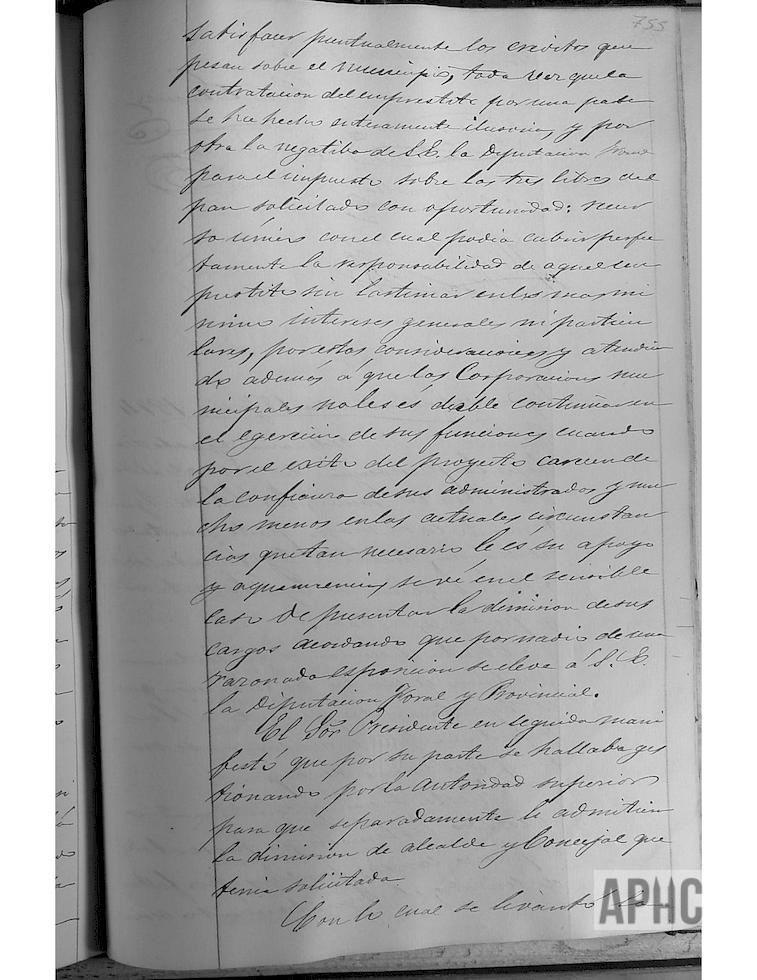 755
satisfacer puntualmente los creditos que
pesan sobre el municipio, toda vez que la
contratacion del emprestito por una parte
se ha hecho enteramente ilusoria, y por
otra la negatiba de S.E. la Diputacion
para el impuesto sobre las tres libras del
pan solicitado con oportunidad: recur
so único con el cual podia cubrir perfec
tamente la responsabilidad de aquel em
prestito sin lastimar en los mas mi
nimo intereses generales ni particu
lares, por estas consideraciones y atendien
do además á que las Corporaciones mu
nicipales no les és dable continuar en
el egercicio de sus funciones cuando
por el exito del proyecto carecen de
la confianza de sus administrados y mu
cho menos en las actuales circunstan
cias que tan necesario le és su apoyo
y aquiescencia, se vé en el sensible
caso de presentar la dimision de sus
cargos acordando que por medio de una
razonada esposicion se eleve á S.E.
la Diputacion Foral y Provincial.
El Sor Presidente en seguida mani
festó que por su parte se hallaba ges
tionando por la autoridad superior
para que separadamente le admitiera
la dimision de alcalde y Concejal que
tenia solicitada.
Con lo cual se levantó la
APHC